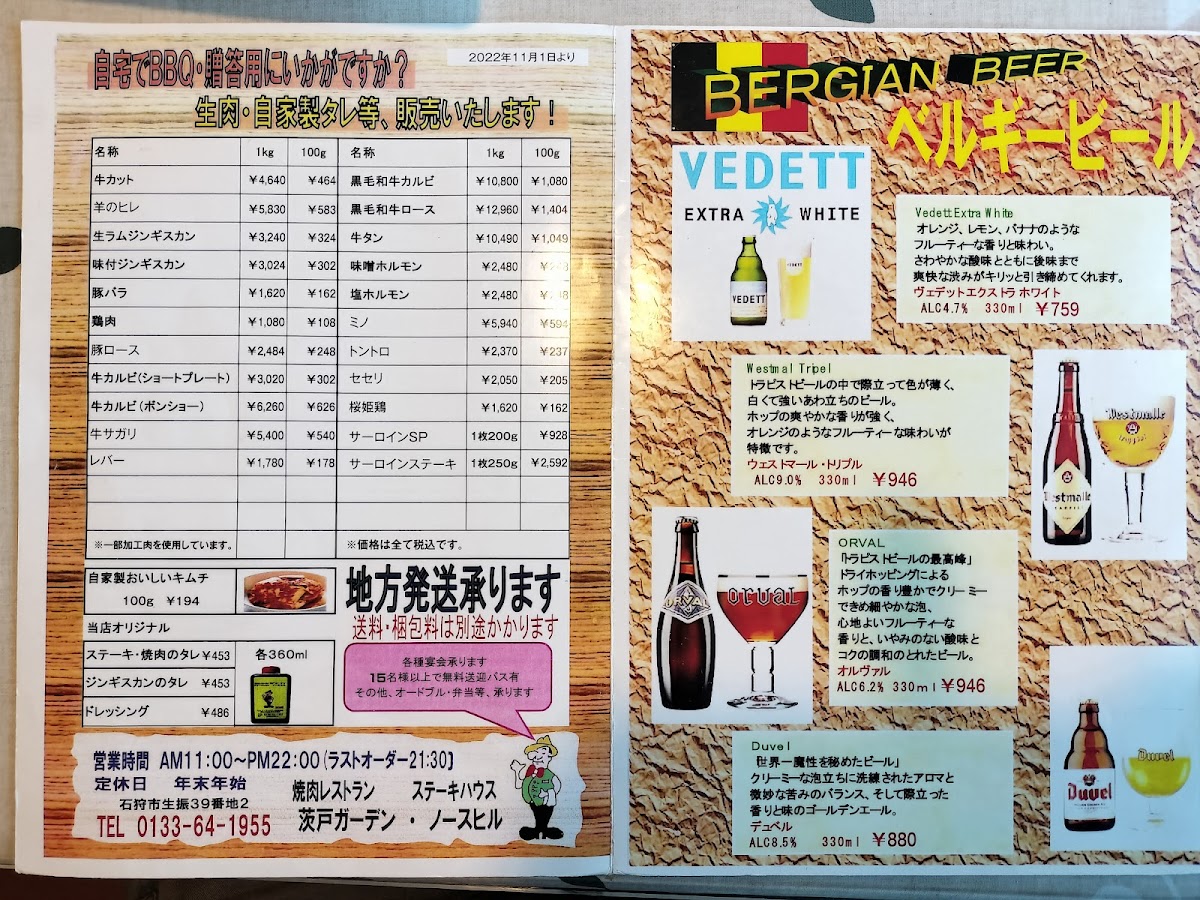 自宅でBBQ・贈答用にいかがですか？
2022年11月1日より
生肉・自家製タレ等、販売いたします！
名称 1kg 100g 名称 1kg 100g
牛カット ¥4,640 ¥464 黒毛和牛カルビ ¥10,800 ¥1,080
羊のヒレ ¥5,830 ¥583 黒毛和牛ロース ¥12,960 ¥1,404
生ラムジンギスカン ¥3,240 ¥324 牛タン ¥10,490 ¥1,049
味付ジンギスカン ¥3,024 ¥302 味噌ホルモン ¥2,480
豚バラ ¥1,620 ¥162 塩ホルモン ¥2,480
鶏肉 ¥1,080 ¥108 ミノ ¥5,940 ¥594
豚ロース ¥2,484 ¥248 トントロ ¥2,370 ¥237
牛カルビ(ショートプレート) ¥3,020 ¥302 セセリ ¥2,050 ¥205
牛カルビ(ボンショー) ¥6,260 ¥626 桜姫鶏 ¥1,620 ¥162
牛サガリ ¥5,400 ¥540 サーロインSP 1枚200g ¥928
レバー ¥1,780 ¥178 サーロインステーキ 1枚250g ¥2,592
※一部加工肉を使用しています。 ※価格は全て税込です。
自家製おいしいキムチ
100g ¥194
当店オリジナル
ステーキ・焼肉のタレ ¥453
ジンギスカンのタレ ¥453
ドレッシング ¥486
各360ml
地方発送承ります
送料・梱包料は別途かかります
各種宴会承ります
15名様以上で無料送迎バス有
その他、オードブル・弁当等、承ります
営業時間 AM11:00～PM22:00(ラストオーダー21:30〕
定休日 年末年始
石狩市生振39番地2
TEL 0133-64-1955
焼肉レストラン ステーキハウス
茨戸ガーデン・ノースヒル
BERGIAN BEER
ベルギービール
VEDETT
EXTRA WHITE
VEDETT
VEDETT
Vedett Extra White
オレンジ、レモン、バナナのような
フルーティーな香りと味わい。
さわやかな酸味とともに後味まで
爽快な渋みがキリッと引き締めてくれます。
ヴェデットエクストラ ホワイト
ALC4.7% 330ml ¥759
Westmal Tripel
トラピストビールの中で際立って色が薄く、
白くて強いあわ立ちのビール。
ホップの爽やかな香りが強く、
オレンジのようなフルーティーな味わいが
特徴です。
ウェストマール・トリプル
ALC9.0% 330ml ¥946
Westmalle
Westmalle
ORVAL
ORVAL
ORVAL
「トラピストビールの最高峰」
ドライホッピングによる
ホップの香り豊かでクリーミー
できめ細やかな泡、
心地よいフルーティーな
香りと、いやみのない酸味と
コクの調和のとれたビール。
オルヴァル
ALC6.2% 330ml ¥946
Duvel
「世界一魔性を秘めたビール」
クリーミーな泡立ちに洗練されたアロマと
微妙な苦みのバランス、そして際立った
香りと味のゴールデンエール。
デュベル
ALC8.5% 330ml ¥880
Duvel
Duvel